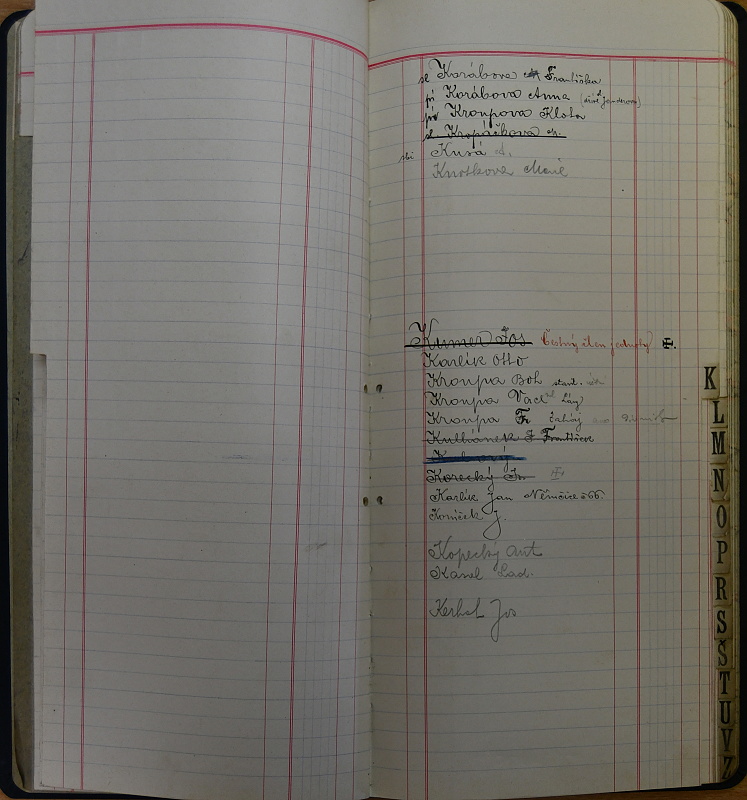 se Korábova Františka
Korábova Anna
Kroupova Klota
Kropáčková A.
Kusá A.
Knotkova Marie
Kumer Jos Čestný člen jednoty
Karlík Otto
Kroupa Boh stav.
Kroupa Vacl Lány
Kroupa Fr Zaháj
Kulhánek F František
Korecký Jn
Karlík Jan Němčice č 66.
Koníček J.
Kopecký Ant
Karel Lad.
Kerhel Jos
K
L
M
N
O
P
R
S
Š
T
U
V
Z